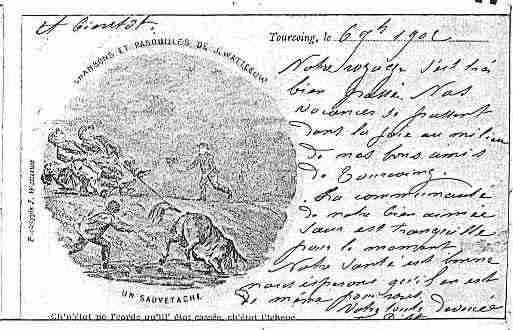 A bientôt.
CHANSONS ET PASQUILLES DE J. WATTEEUW
Tourcoing, le 6 9bre 1902
Notre voyage s'est très
bien passé. Nos
vacances se passent
dans la joie au milieu
de nos bons amis
de Tourcoing.
La communauté
de notre bien aimée
sœur est tranquille
pour le moment.
Notre santé est bonne
nous espérons qu'il en est
de même pour vous.
Votre toute dévouée
Watteeuw
UN SAUVETACHE
Ch'n'étot pe l'corde qu'ill' étot cassée, ch'étot l'